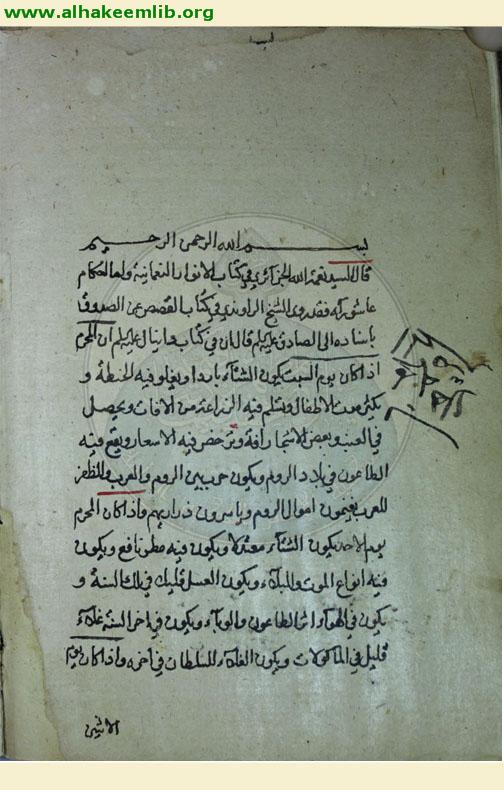 www.alhakeemlib.org
بسم الله الرحمن الرحيم
قال السيد نعمة الله الجزائري في كتاب الانوار النعمانية واما احكام
عاشوراء فقد روى الشيخ الراوندي في كتاب القصص عن الصدوق
باسناده الى الصادق عليه السلم قال ان في كتاب دانيال عليه السلم ان المحرم
اذا كان يوم السبت يكون الشتاء باردا ويغلو فيه الحنطة و
يكثر موت الاطفال ويسلم فيه الزراعة من الافات ويحصل
في العنب وبعض الاشجار افة وترخص فيه الاسعار ويقع فيه
الطاعون في بلاد الروم ويكون حرب بين الروم والعرب والظفر
للعرب يغنمون اموال الروم وياسرون ذراريهم واذا كان المحرم
يوم الاحد يكون الشتاء معتدلا ويكون فيه مطر نافع ويكون
فيه انواع الموت والبلاء ويكون العسل قليلا في تلك السنة و
يكون في الهواء اثر الطاعون والوباء ويكون في اخر السنة غلاء
قليل في الماكولات ويكون الغلبة للسلطان في اخره واذا كان يوم
الاثنين